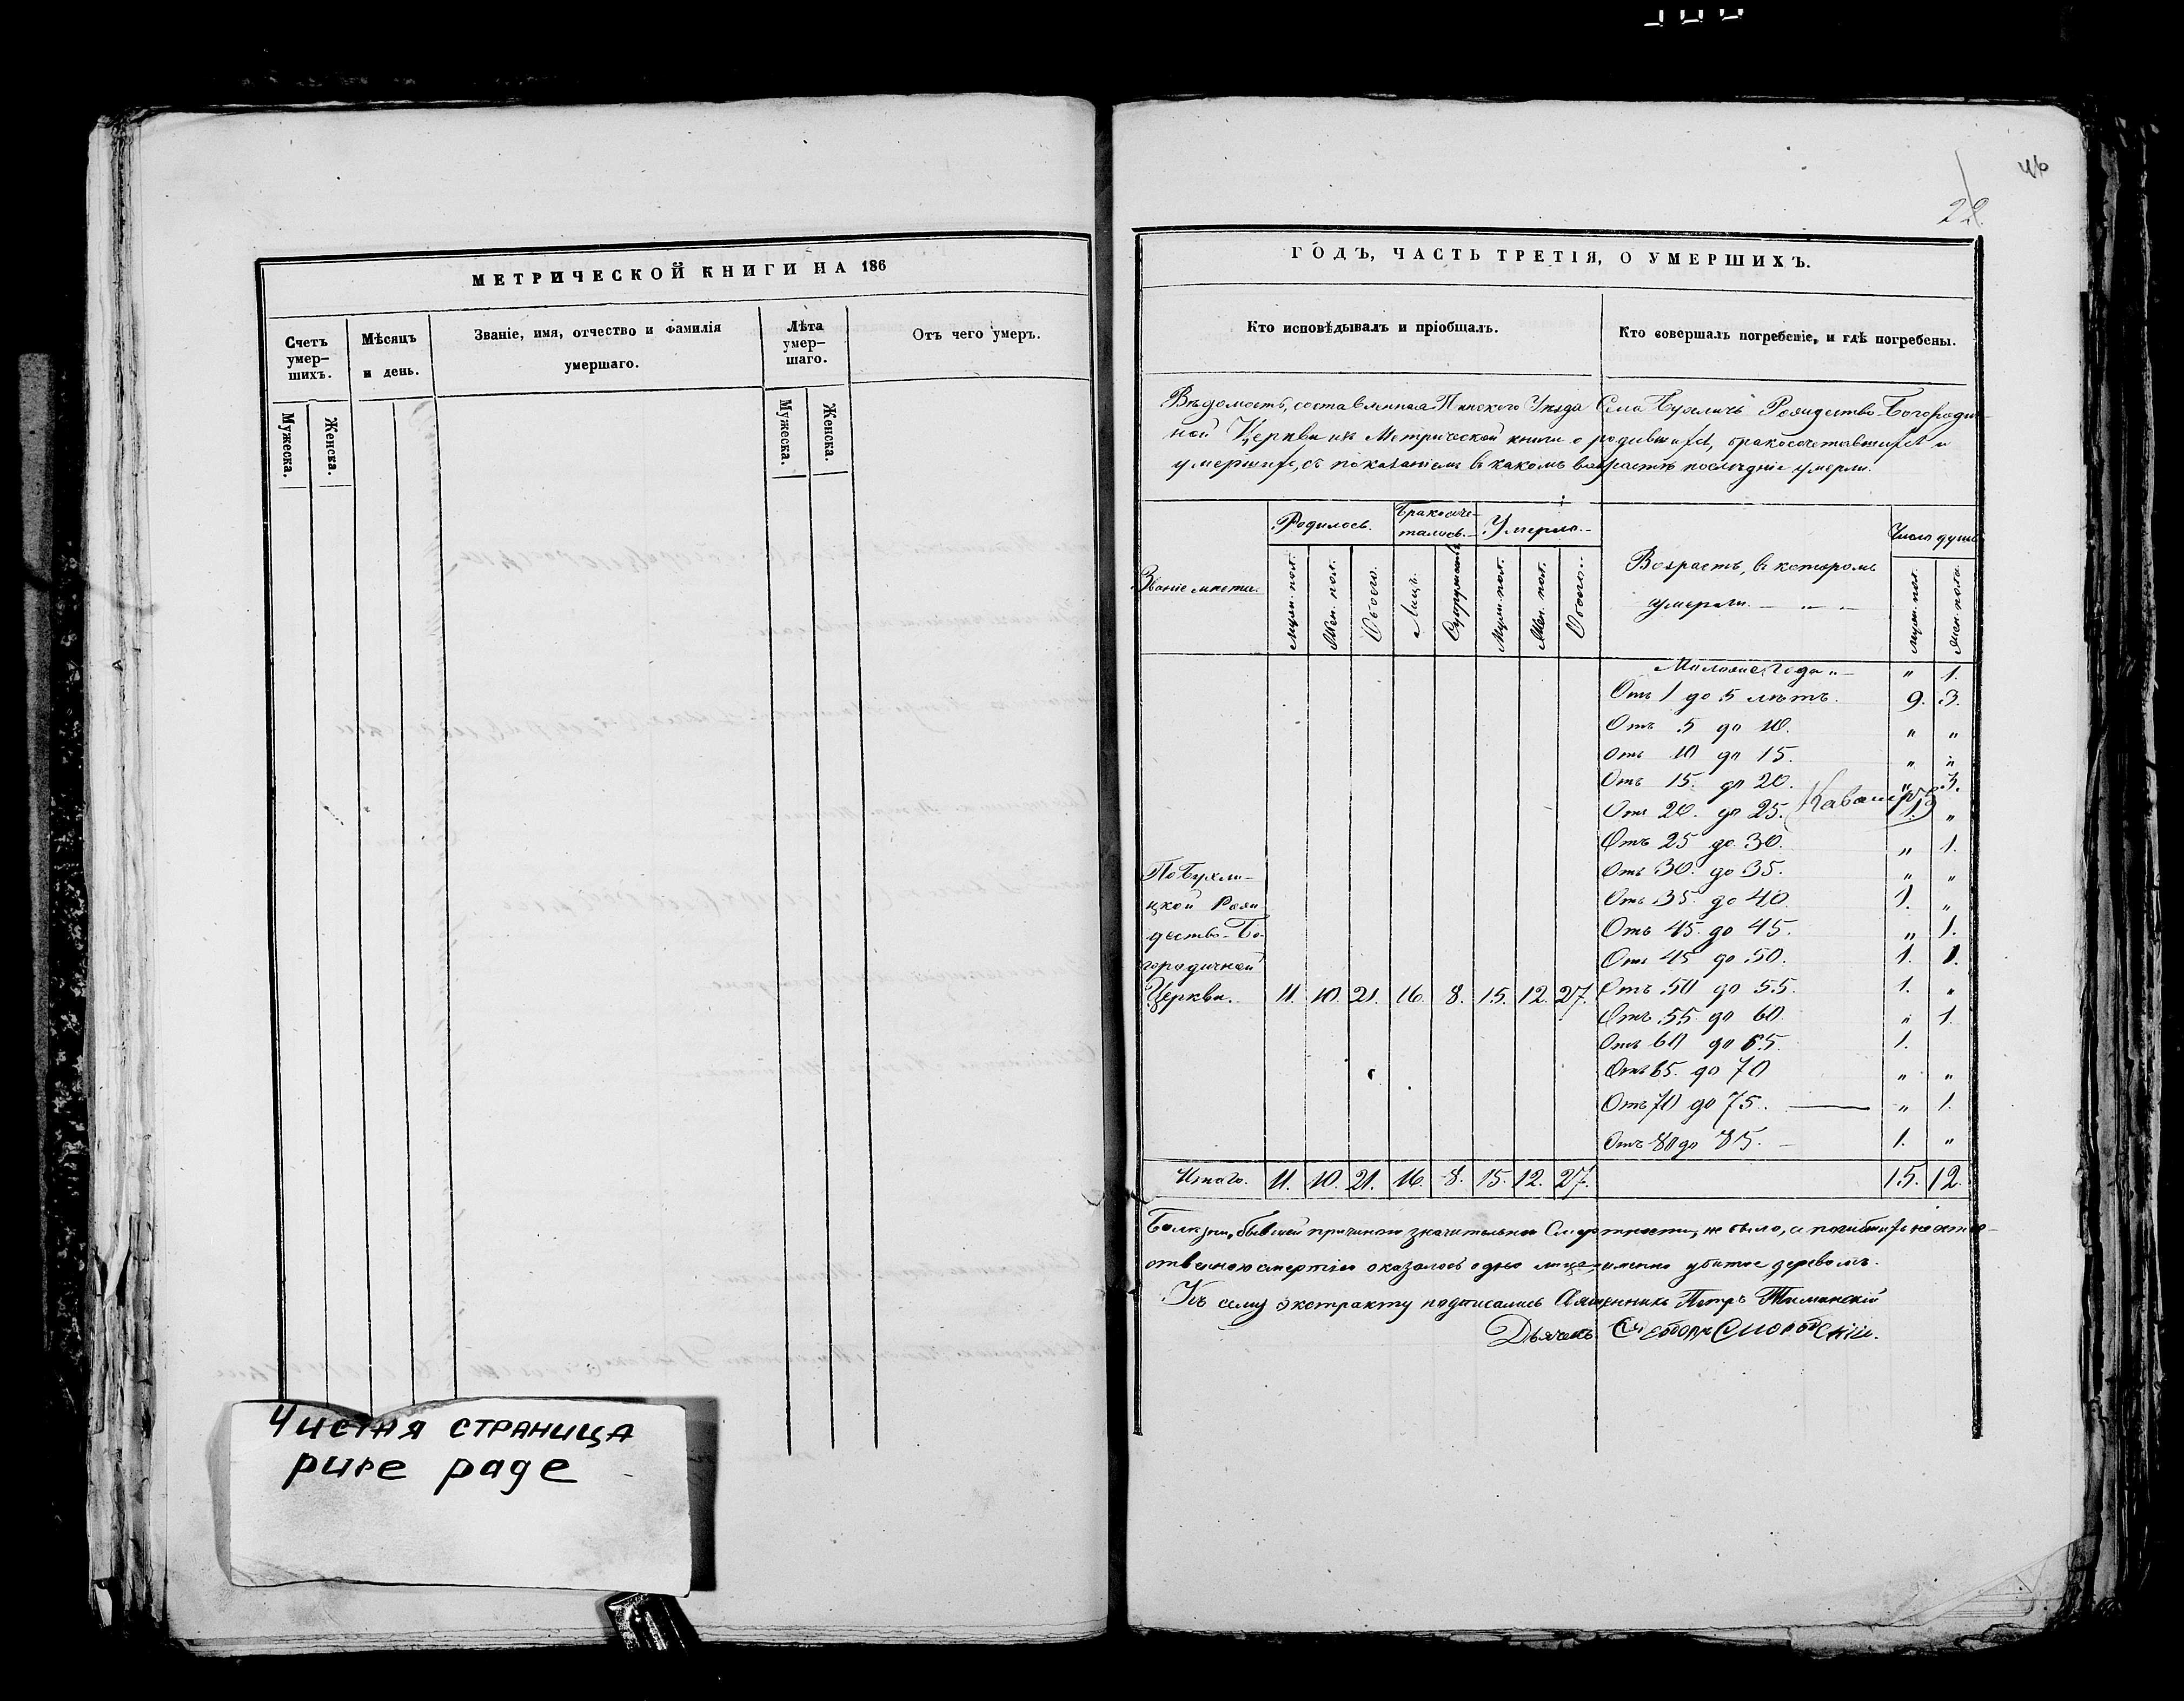 46
22.
МЕТРИЧЕСКОЙ КНИГИ НА 186
Счетъ умер-шихъ.
Мѣсяцъ и день.
Званіе, имя, отчество и фамилія умершаго.
Лѣта умер-шаго.
Отъ чего умеръ.
Мужеска.
Женска.
Мужеска.
Женска.
Чистая страница
pure page
ГОДЪ, ЧАСТЬ ТРЕТІЯ, О УМЕРШИХЪ.
Кто исповѣдывалъ и пріобщалъ.
Кто совершалъ погребеніе, и гдѣ погребены.
Вѣдомость, составленная Пинскаго Уѣзда Села Рождество-Богородич-
ной Церкви изъ Метрической книги о родившихся, бракосочетавшихся и
умершихъ, съ показаніемъ въ какомъ возрастѣ послѣдніе умерли.
Званіе мѣста.
Родилось.
Бракосоче-
талось.
Умерло.
Возрастъ, въ которомъ
умерли. — „ —
Число душъ
муж. пол.
Жен. пол.
Обоего.
Лицъ.
Супружествъ
Муж. пол.
Жен. пол.
Обоего.
муж. пол.
жен. пола.
Моложе года „ 1.
Отъ 1 до 5 лѣтъ. 9. 3.
Отъ 5 до 10. „ „
отъ 10 до 15. „ „
Отъ 15. до 20. „ 3.
Отъ 20. до 25. 1. „
Отъ 25 до 30. „ 1.
Отъ 30. до 35. „ „
Отъ 35. до 40. 1. „
Отъ 45. до 45. „ 1.
Отъ 45 до 50. 1. 1.
Отъ 50 до 55. 1. „
Отъ 55. до 60. „ 1.
Отъ 60 до 65. 1.
Отъ 65. до 70 „ „
Отъ 70 до 75. — „ 1.
Отъ 80 до 85. — 1. „
По Бухли-
цкой Рож
дество-Бо-
городичной
Церкви. 11. 10. 21. 16. 8. 15. 12. 27.
Итого. 11. 10. 21. 16. 8. 15. 12. 27. 15. 12.
Болѣзни, бывшей причиною значительной Смертности, не было, а погибшихъ неесте-
ственною смертію оказалось одно лице, именно убитое деревомъ.
Къ сему экстракту подписались Священникъ Петръ
Дьячекъ